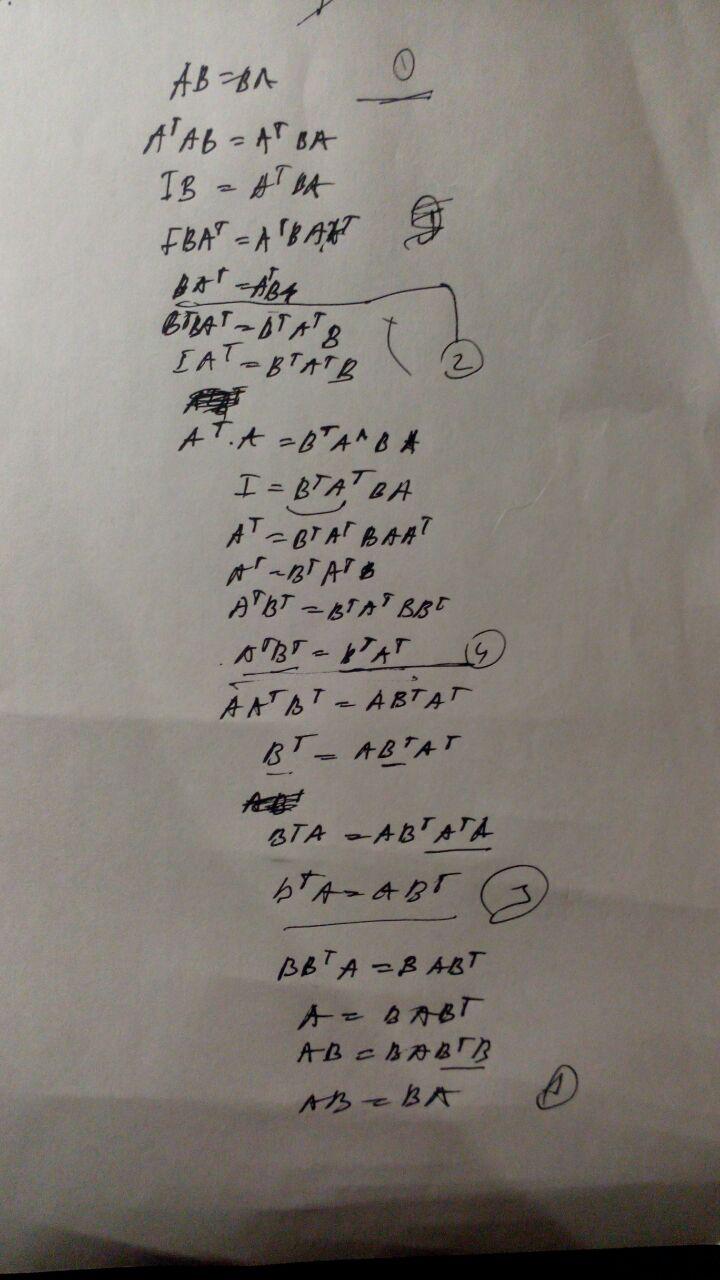 AB = BA ①
AᵀAB = Aᵀ BA
IB = AᵀBA
IBAᵀ = AᵀBAAᵀ
BAᵀ = AᵀBA
BᵀBAᵀ = BᵀAᵀB
IAᵀ = BᵀAᵀB ②
Aᵀ.A = BᵀAᴬBA
I = BᵀAᵀBA
Aᵀ = BᵀAᵀBAAᵀ
Aᵀ = BᵀAᵀB
AᵀBᵀ = BᵀAᵀBBᵀ
AᵀBᵀ = BᵀAᵀ ④
AAᵀBᵀ = ABᵀAᵀ
Bᵀ = ABᵀAᵀ
BᵀA = ABᵀAᵀA
bᵀA = ABᵀ ③
BBᵀA = BABᵀ
A = BABᵀ
AB = BABᵀB
AB = BA ①